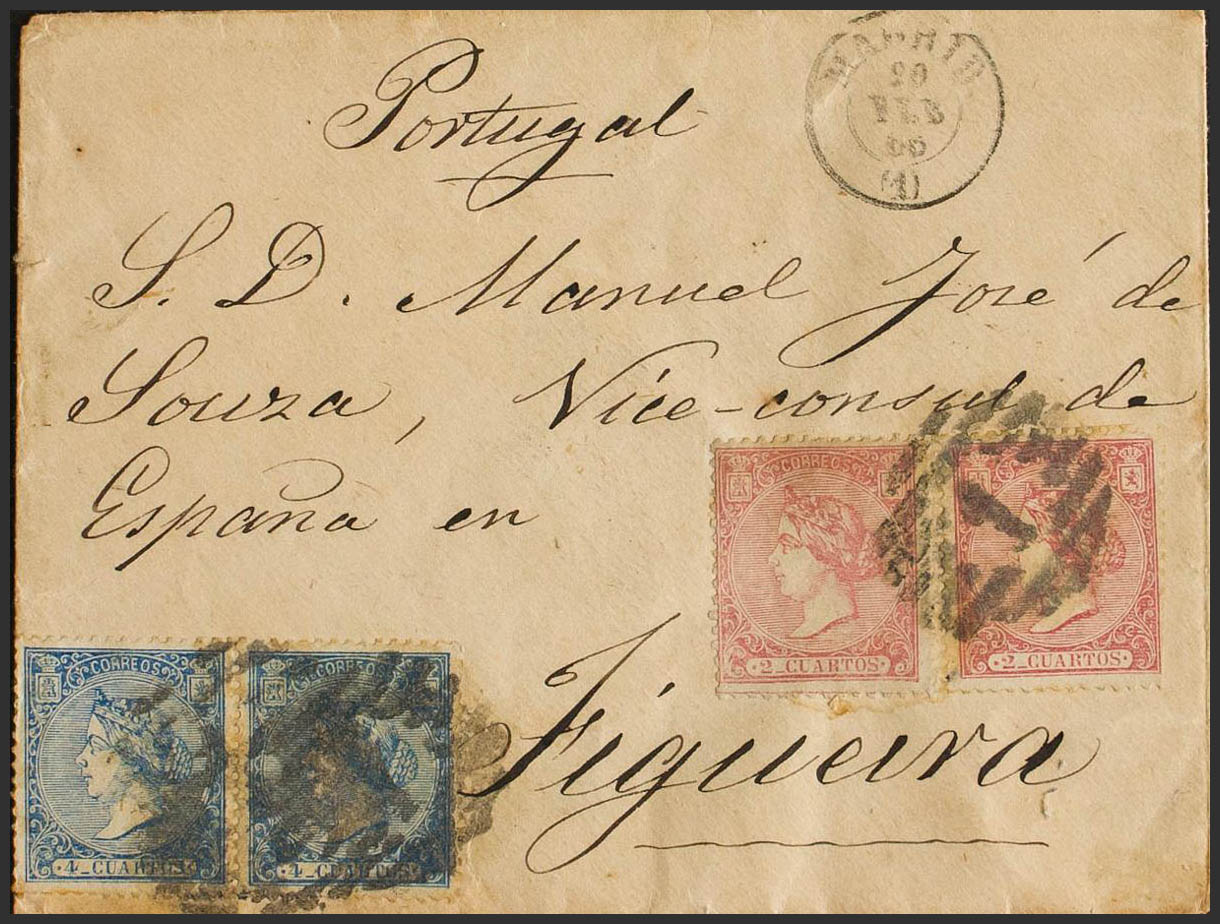 Portugal
MADRID
20
FEB
66
(1)
S. D. Manuel José de
Souza, Vice-consul de
España en
Figueira
CORREOS
2_CUARTOS
2_CUARTOS
CORREOS
4_CUARTOS
CORREOS
4_CUARTOS